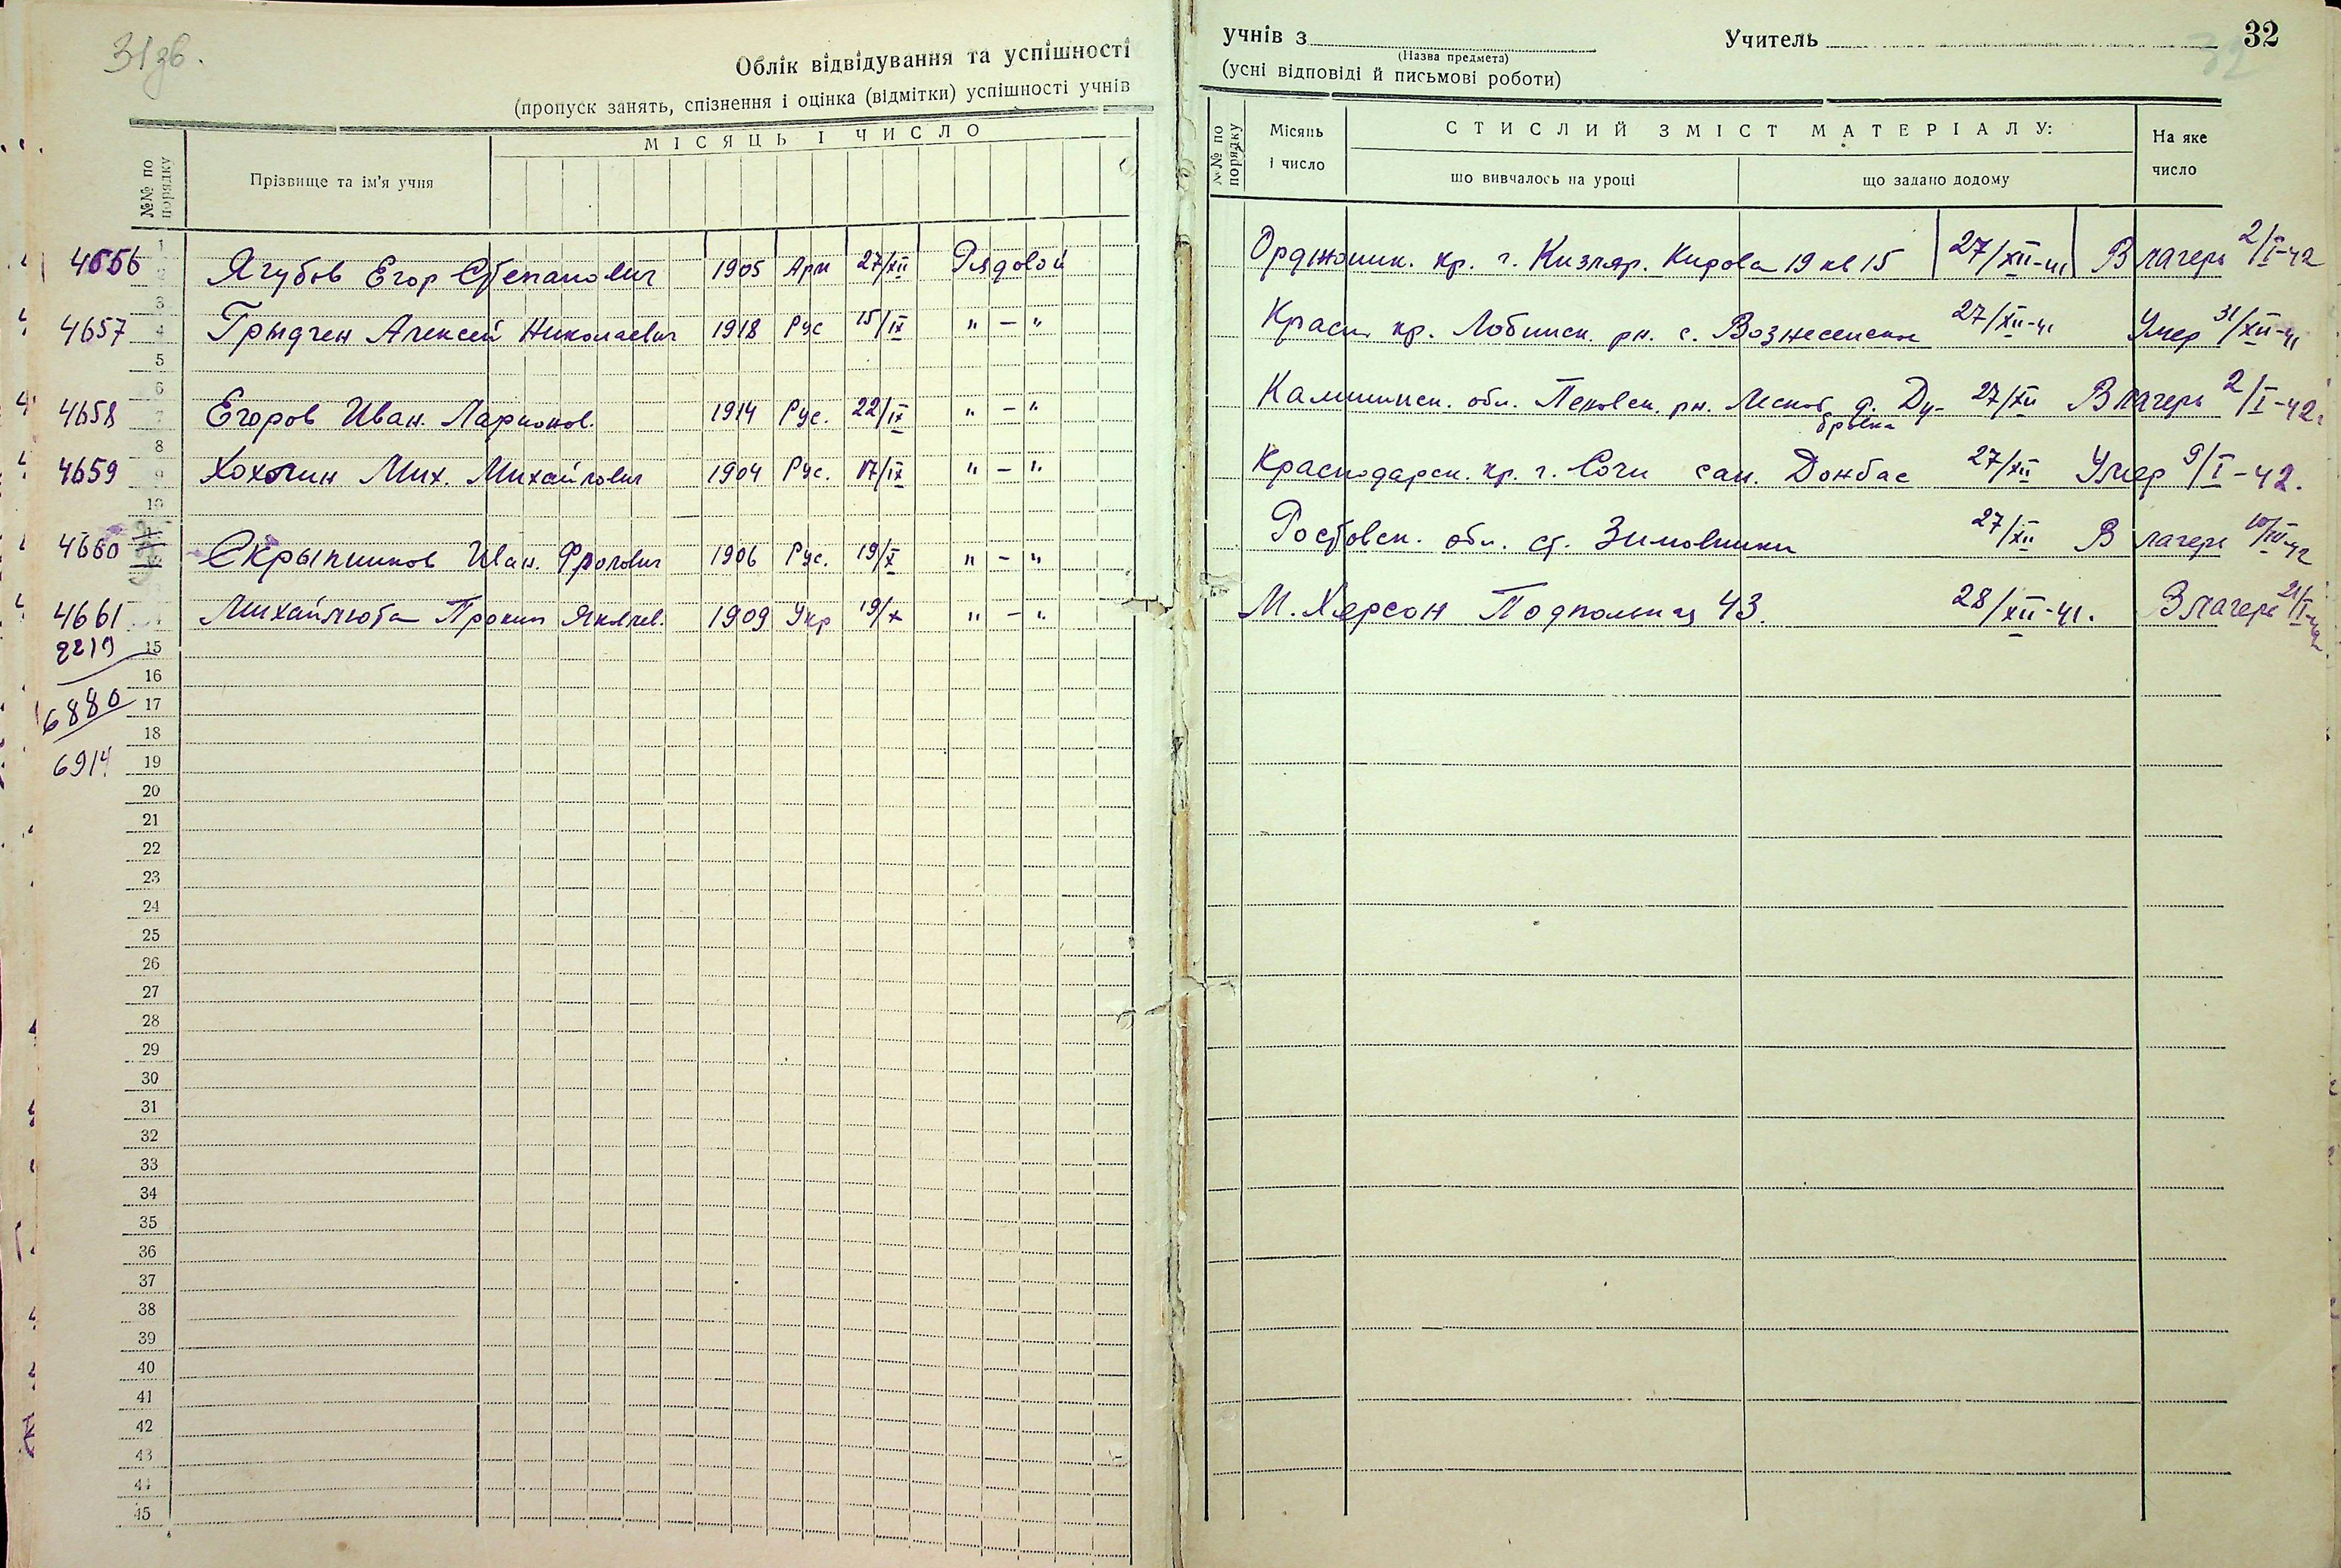 31зв.
Облік відвідування та успішності
(пропуск занять, спізнення і оцінка (відмітки) успішності учнів
№№ по порядку
Прізвище та ім'я учня
МІСЯЦЬ І ЧИСЛО
учнів з
(Назва предмета)
Учитель
32
32
(усні відповіді й письмові роботи)
№№ по порядку
Місяць і число
СТИСЛИЙ ЗМІСТ МАТЕРІАЛУ:
що вивчалось на уроці
що задано додому
На яке число
4656 Ягубов Егор Степанович 1905 Арм 27/XII Рядовой Орджоник. кр. г. Кизляр. Кирова 19 кв 15 27/XII-41 В лагерь 2/I-42
4657 Грыдчен Алексей Николаевич 1918 Рус 15/IX " — " Красн. кр. Лабинск. рн. с. Вознесенское 27/XII-41 Умер 31/XII-41
4658 Егоров Иван. Ларионов. 1914 Рус. 22/IX " — " Калининск. обл. д. Ду-
бровка 27/XII В лагерь 2/I-42.
4659 Хохлин Мих. Михайлович 1904 Рус. 17/IX " — " Краснодарск. кр. г. Сочи сан. Донбас 27/XII Умер 9/I-42.
4660 Скрыпников Иван. Фролович 1906 Рус. 19/X " — " Ростовск. обл. ст. Зимовники 27/XII В лагерь 10/III-42
4661 Михайлюта Прокип Яковлев. 1909 Укр 19/X " — " М. Херсон 43. 28/XII-41. В лагерь 21/I-42
2219 15
16
6880 17
18
6914 19
20
21
22
23
24
25
26
27
28
29
30
31
32
33
34
35
36
37
38
39
40
41
42
43
44
45